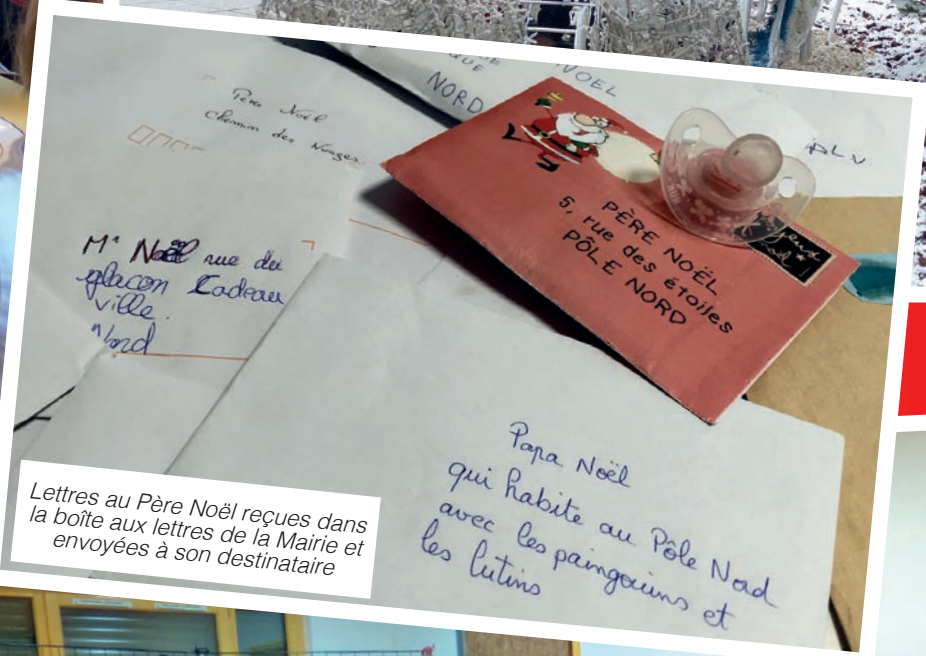 NOEL
QUE
NORD
Père Noël
Chemin des Nuages
ALV
Mr Noël rue du
glacon Cadeau
ville.
Nord
PÈRE NOËL
5, rue des étoiles
PÔLE NORD
Papa Noël
qui habite au Pôle Nord
avec les paingouins et
les lutins
Lettres au Père Noël reçues dans
la boîte aux lettres de la Mairie et
envoyées à son destinataire